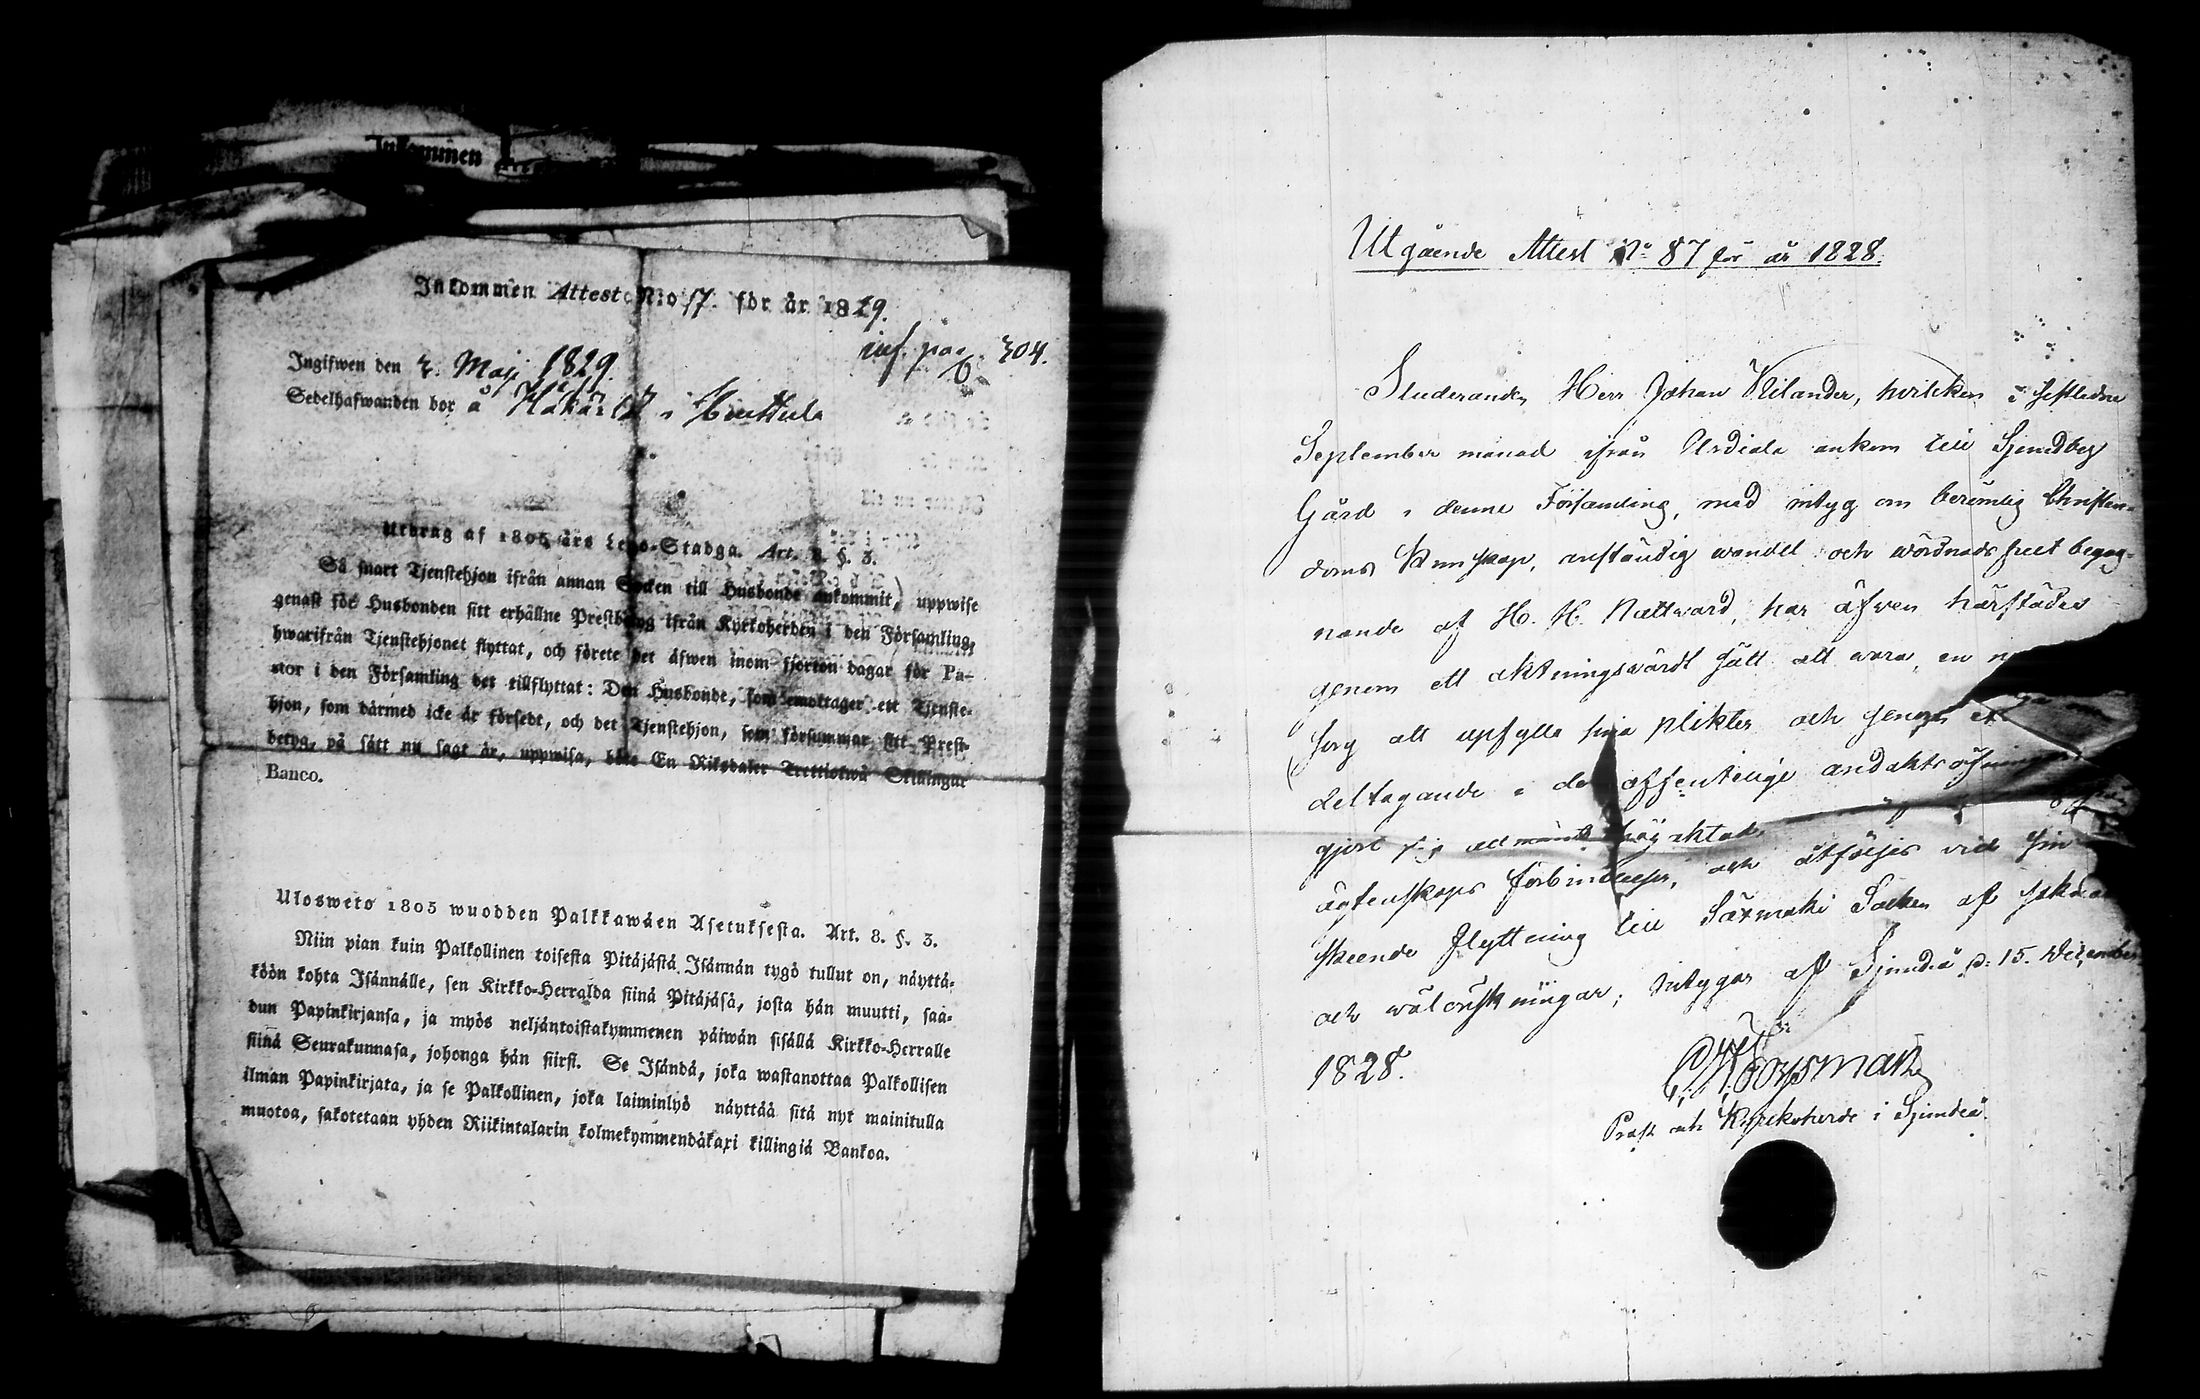 Inkommen
Inkommen Attest N:o 17. för år 1829.
inf. pag. 304.
Ingifwen den 3. Maji 1829.
Sedelhafwanden bor å i
Utdrag af 1805 års Lego-Stadga. Art. 8. §. 3.
Så snart Tjenstehjon ifrån annan Socken till Husbonde ankommit, uppwise
genast för Husbonden sitt erhållne Prestbetyg ifrån Kyrkoherden i den Församling,
hwarifrån Tjenstehjonet flyttat, och förete det äfwen inom fjorton dagar för Pa-
stor i den Församling det tillflyttat: Den Husbonde, som emottager ett Tjenste-
hjon, som därmed icke är försedt, och det Tjenstehjon, som försummar sitt Prest-
betyg, på sätt nu sagt är, uppwisa, böte En Riksdaler Trettiotwå Skillingar
Banco.
Ulosweto 1805 wuodden Palkkawäen Asetuksesta. Art. 8. §. 3.
Niin pian kuin Palkollinen toisesta Pitäjästä Isännän tygö tullut on, näyttä-
köön kohta Isännälle, sen Kirkko-Herralda siinä Pitäjäsä, josta hän muutti, saa-
dun Papinkirjansa, ja myös neljäntoistakymmenen päiwän sisällä Kirkko-Herralle
siinä Seurakunnasa, johonga hän siirsi. Se Isändä, joka wastanottaa Palkollisen
ilman Papinkirjata, ja se Palkollinen, joka laiminlyö näyttää sitä nyt mainitulla
muotoa, sakotetaan yhden Riikintalarin kolmekymmendäkaxi killingiä Bankoa.
Utgående Attest No 87 för år 1828.
Studeranden Herr Johan Kilander, hvilken i sistledne
September månad ifrån Urdiala ankom till Sjundby
Gård i denne Församling, med intyg om berömlig Christen-
doms Kunskap, anständig wandel och wördnadsfullt begag-
nande af H. H. Nattward, har äfven härstädes
genom ett aktningswärdt sätt att wara, en
sorg att upfylla sina plikter och genom
deltagande i de offentelige andaktsöfningar
gjort sig allmänt högaktad
ägtenskaps förbindelser, och åtföljes vid sin
skeende flyttning till Säxmäki Socken af
och välönskningar; intygar af Sjundeå d. 15. December
1828.
Prost och Kyrkoherde i Sjundeå.